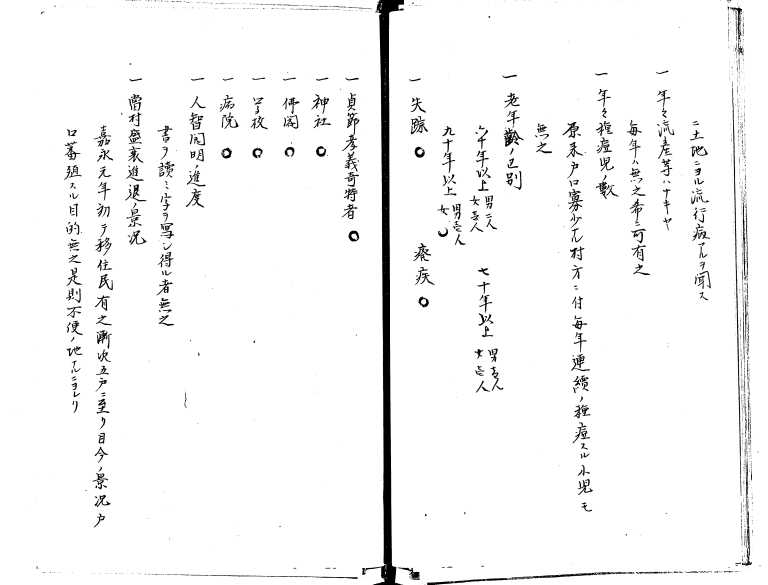 ニ土地ニヨル流行病アルヲ聞ス
一 年々流産等ハナキヤ
毎年ハ無之希ニ可有之
一 年々種痘児ノ数
原来戸口寡少ナル村方ニ付毎年連續ノ種痘スル小児モ
無之
一 老年齢ノ区別
六十年以上 男二人 女壱人 七十年以上 男壱人 女壱人
九十年以上 男壱人 女〇
一 失踪〇 癈疾〇
一 貞節孝義奇特者〇
一 神社〇
一 佛閣〇
一 学校〇
一 病院〇
一 人智開明ノ進度
書ヲ讀ミ字ヲ写シ得ル者無之
一 當村盛衰進退ノ景況
嘉永元年初テ移住民有之漸次五戸ニ至リ目今ノ景況戸
口蕃殖スル目的無之是則不便ノ地ナルニヨレリ